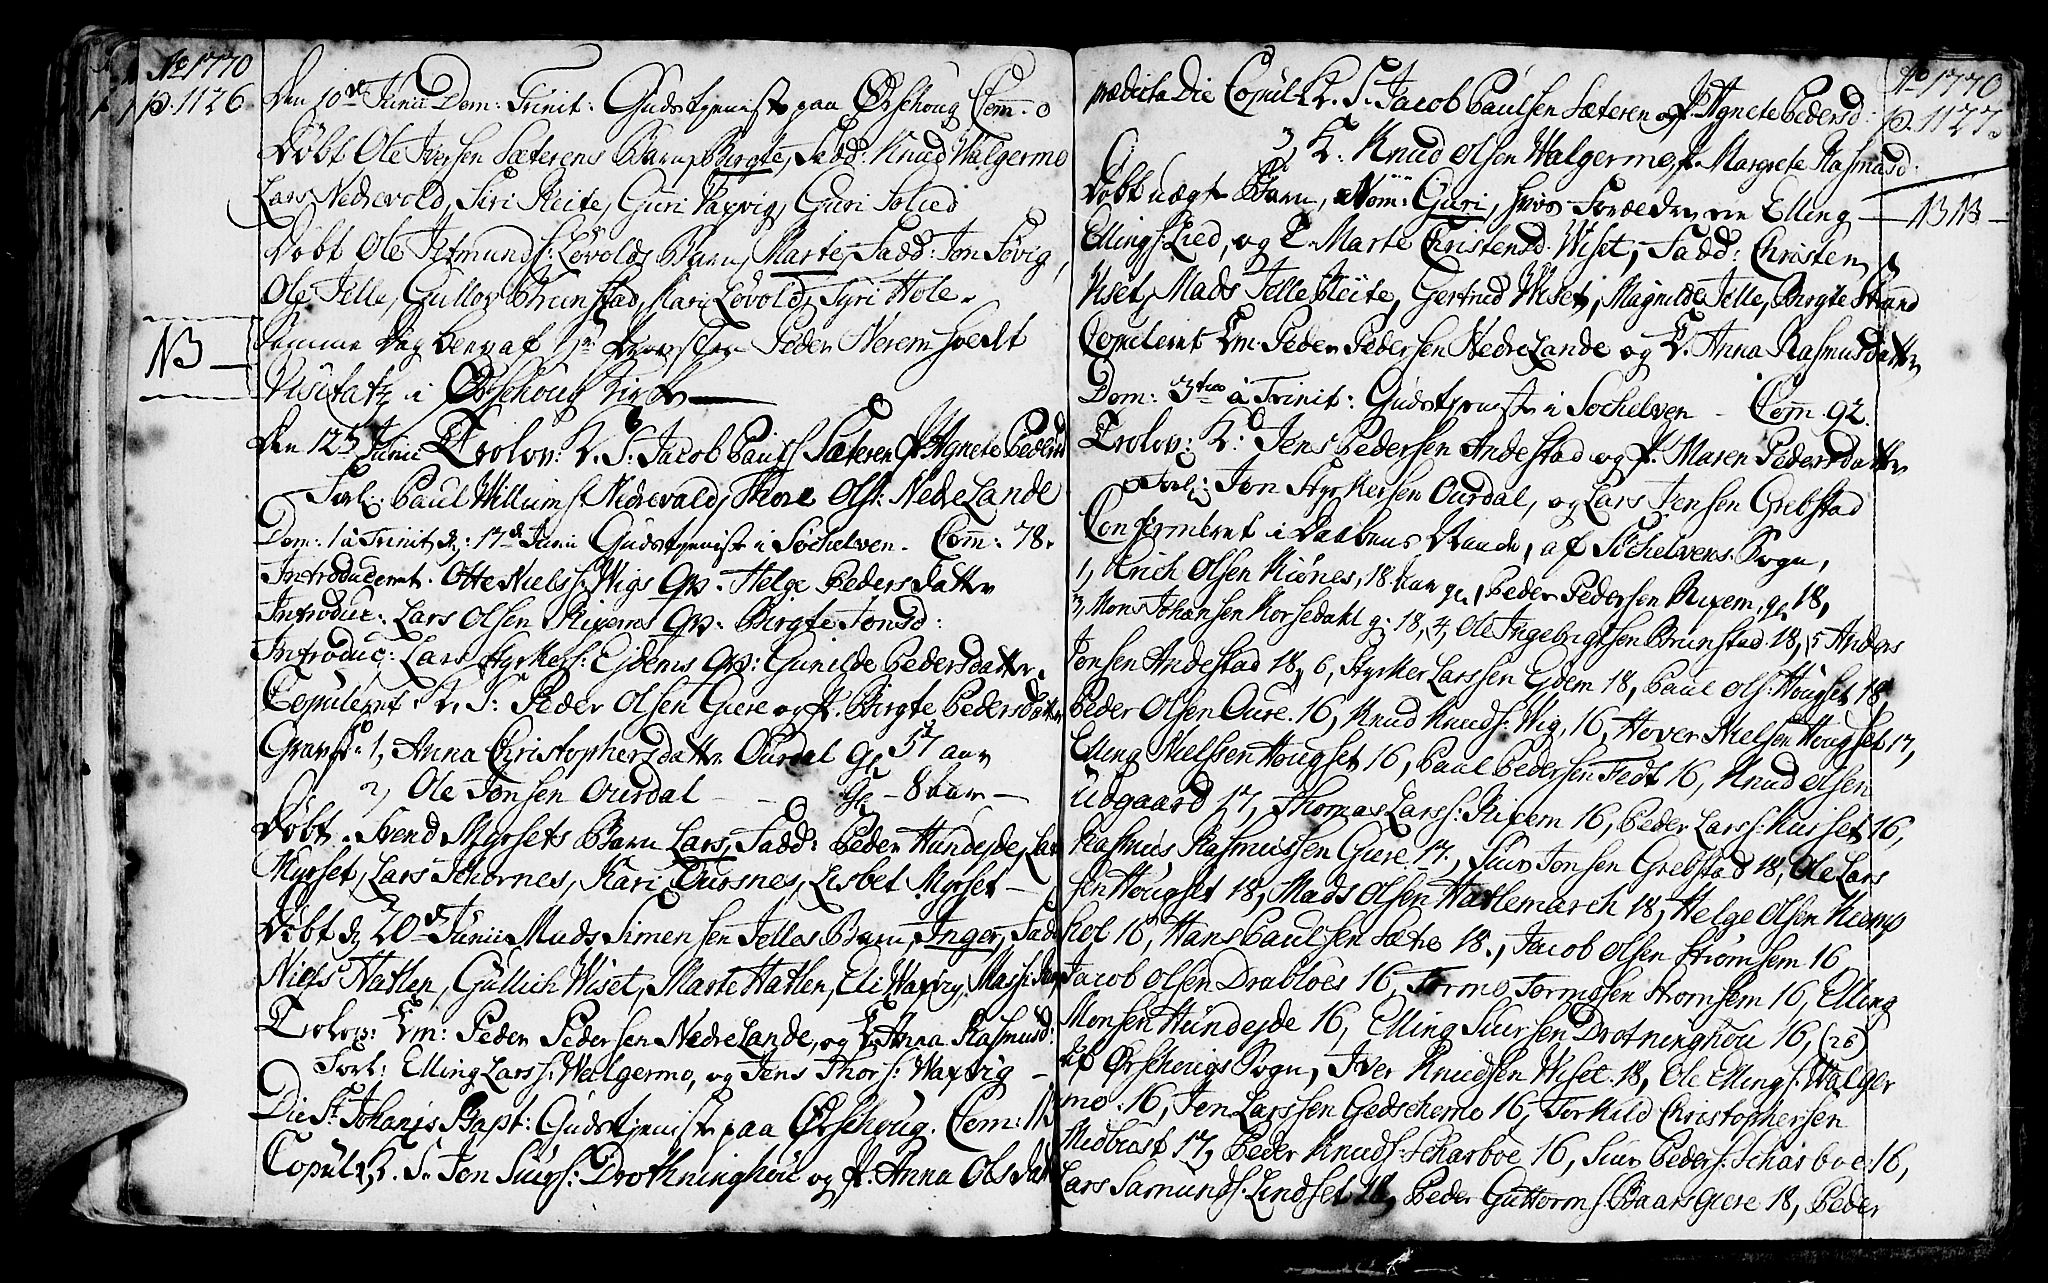 Ao 1770
p. 1126
Den 10de Junii Dom: Trinit: Gudstjeneste paa Ørschoug Com. 0
Døbt Ole Iversen Sæterens Barn, Birgte, Fadd: Knud Walgermo
Lars Nedrevold, Siri Reite, Guri Vaxvig, Guri Solied
Døbt Ole Jetmunds: Løvolds Barn, Marte, Fadd: Jon Søvig,
Ole Jelle, Gullov Brunstad, Kari Løvold, Syri Hole.
NB
Samme Dag blev af Hr Peder Nerem holdt
Visitatz i Ørschoug Kirke
Den 12te Junii Trolov: K. S. Jacob Pauls Sæteren P. Agnete Peders
Forl: Paul Willums: Nedrevald, Thore Ols: Nedre Lande
Dom: 1 à Trinit, d: 17de Junii Gudstjenist i Søchelven. Com: 78.
Introduceret. Otte Niels: Wigs Qv: Helge Pedersdatter
Introduc: Lars Olsen Rixems Qv: Birgte Jonsd:
Introduc: Lars Styrkers: Ejdems Qv: Gunilde Pedersdatter.
Copuleret K. S: Peder Olsen Giere og P. Birgte Pedersdatter
Gravf: 1, Anna Christophersdatter Ourdal g. 57 aar
2, Ole Jonsen Ourdal - - g. - 8 aar -
Døbt. Svend Myrsets Barn Lars, Fadd: Peder Hundejde, Lars
Myrset, Lars Schornes, Kari Tusnes, Lisbet Myrset -
Døbt d, 20de Junii Mads Simensen Jelles Barn, Inger, Fadd
Niels Hatlen, Gullich Wiset, Marte Hatlen, Eli Waxvig,
Trolov: Em: Peder Pedersen Nedre Lande, og E. Anna Rasmusd:
Forl: Elling Lars: Walgermo, og Jens Thors: Waxvig -
Die St. Johanis Bapt: Gudstjenist paa Ørschoug. Com:
Copul: K. S. Jon Siurs: Drothninghou og P. Anna Olsdatt
Ao 1770
p. 1127
prædicta Die Copul. K. S. Jacob Paulsen Sæteren og P. Agnete Pedersd:
2, K: Knud Olsen Walgermo, P. Margrete Rasmusd:
NB
Døbt uægte Barn, Nom: Guri, hvis Forældre ere Elling
Ellings: Lied, og E. Marte Christensd: Wiset, Fadd: Christen
Viset, Mads Jelle Reite, Gertrud Wiset, Magnilde Jelle, Birgte Strand
Copuleret Em Peder Pedersen Nedre Lande og E. Anna Rasmusdatter
Dom: 3tia à Trinit: Gudstjeniste i Søchelven - Com. 92.
Trolov: K: Jens Pedersen Andestad og P. Maren Pedersdatter
Forl: Jon Styrkersen Ourdal, og Lars Jensen Grebstad
Confirmeret i Daabens Naade, af Søchelvens Sogn,
1, Erich Olsen Riønes, 18 aar g. Peder Pedersen Rixem, g. 18,
3, Mons Johansen Korsedahl g. 18, 4, Ole Ingebrigtsen Brunstad 18, 5 Anders
Jonsen Andestad 18, 6, Styrker Larssen Ejdem 18, Paul Ols: Hougset 18,
Peder Olsen Oure. 16, Knud Knuds: Wig, 16, Hover Nielsen Hougset 17,
Elling Nielssen Hougset 16, Paul Pedersen Fedt 16, Knud Olsen
Udgaard 17, Thomas Lars: Rixem 16, Peder Lars: Kurset 16,
Rasmus Rasmussen Giere 17., Siur Jonsen Grebstad 18, Ole Lars
sen Hougset 18, Mads Olsen Hatlemarch 18, Helge Olsen
hol 16, Hans Paulsen Sætre 18., Jacob Olsen Strømsem 16
Jacob Olsen Drabløes 16, Tormo Tormosen Strømsem 16, Elling
Monsen Hundejde 16, Elling Siursen Drotninghou 16, (26)
Af Ørschougs Sogn, Iver Knudsen Wiset 18, Ole Ellings: Walger
mo: 16, Jon Larssen Gedschemo 16, Torkild Christophersen
Midbøst 17, Peder Knuds: Scharboe 16, Siur Peders: Scharboe: 16,
Lars Samunds: Lindset 18, Peder Guttorms: Baarsgiere 18, Peder